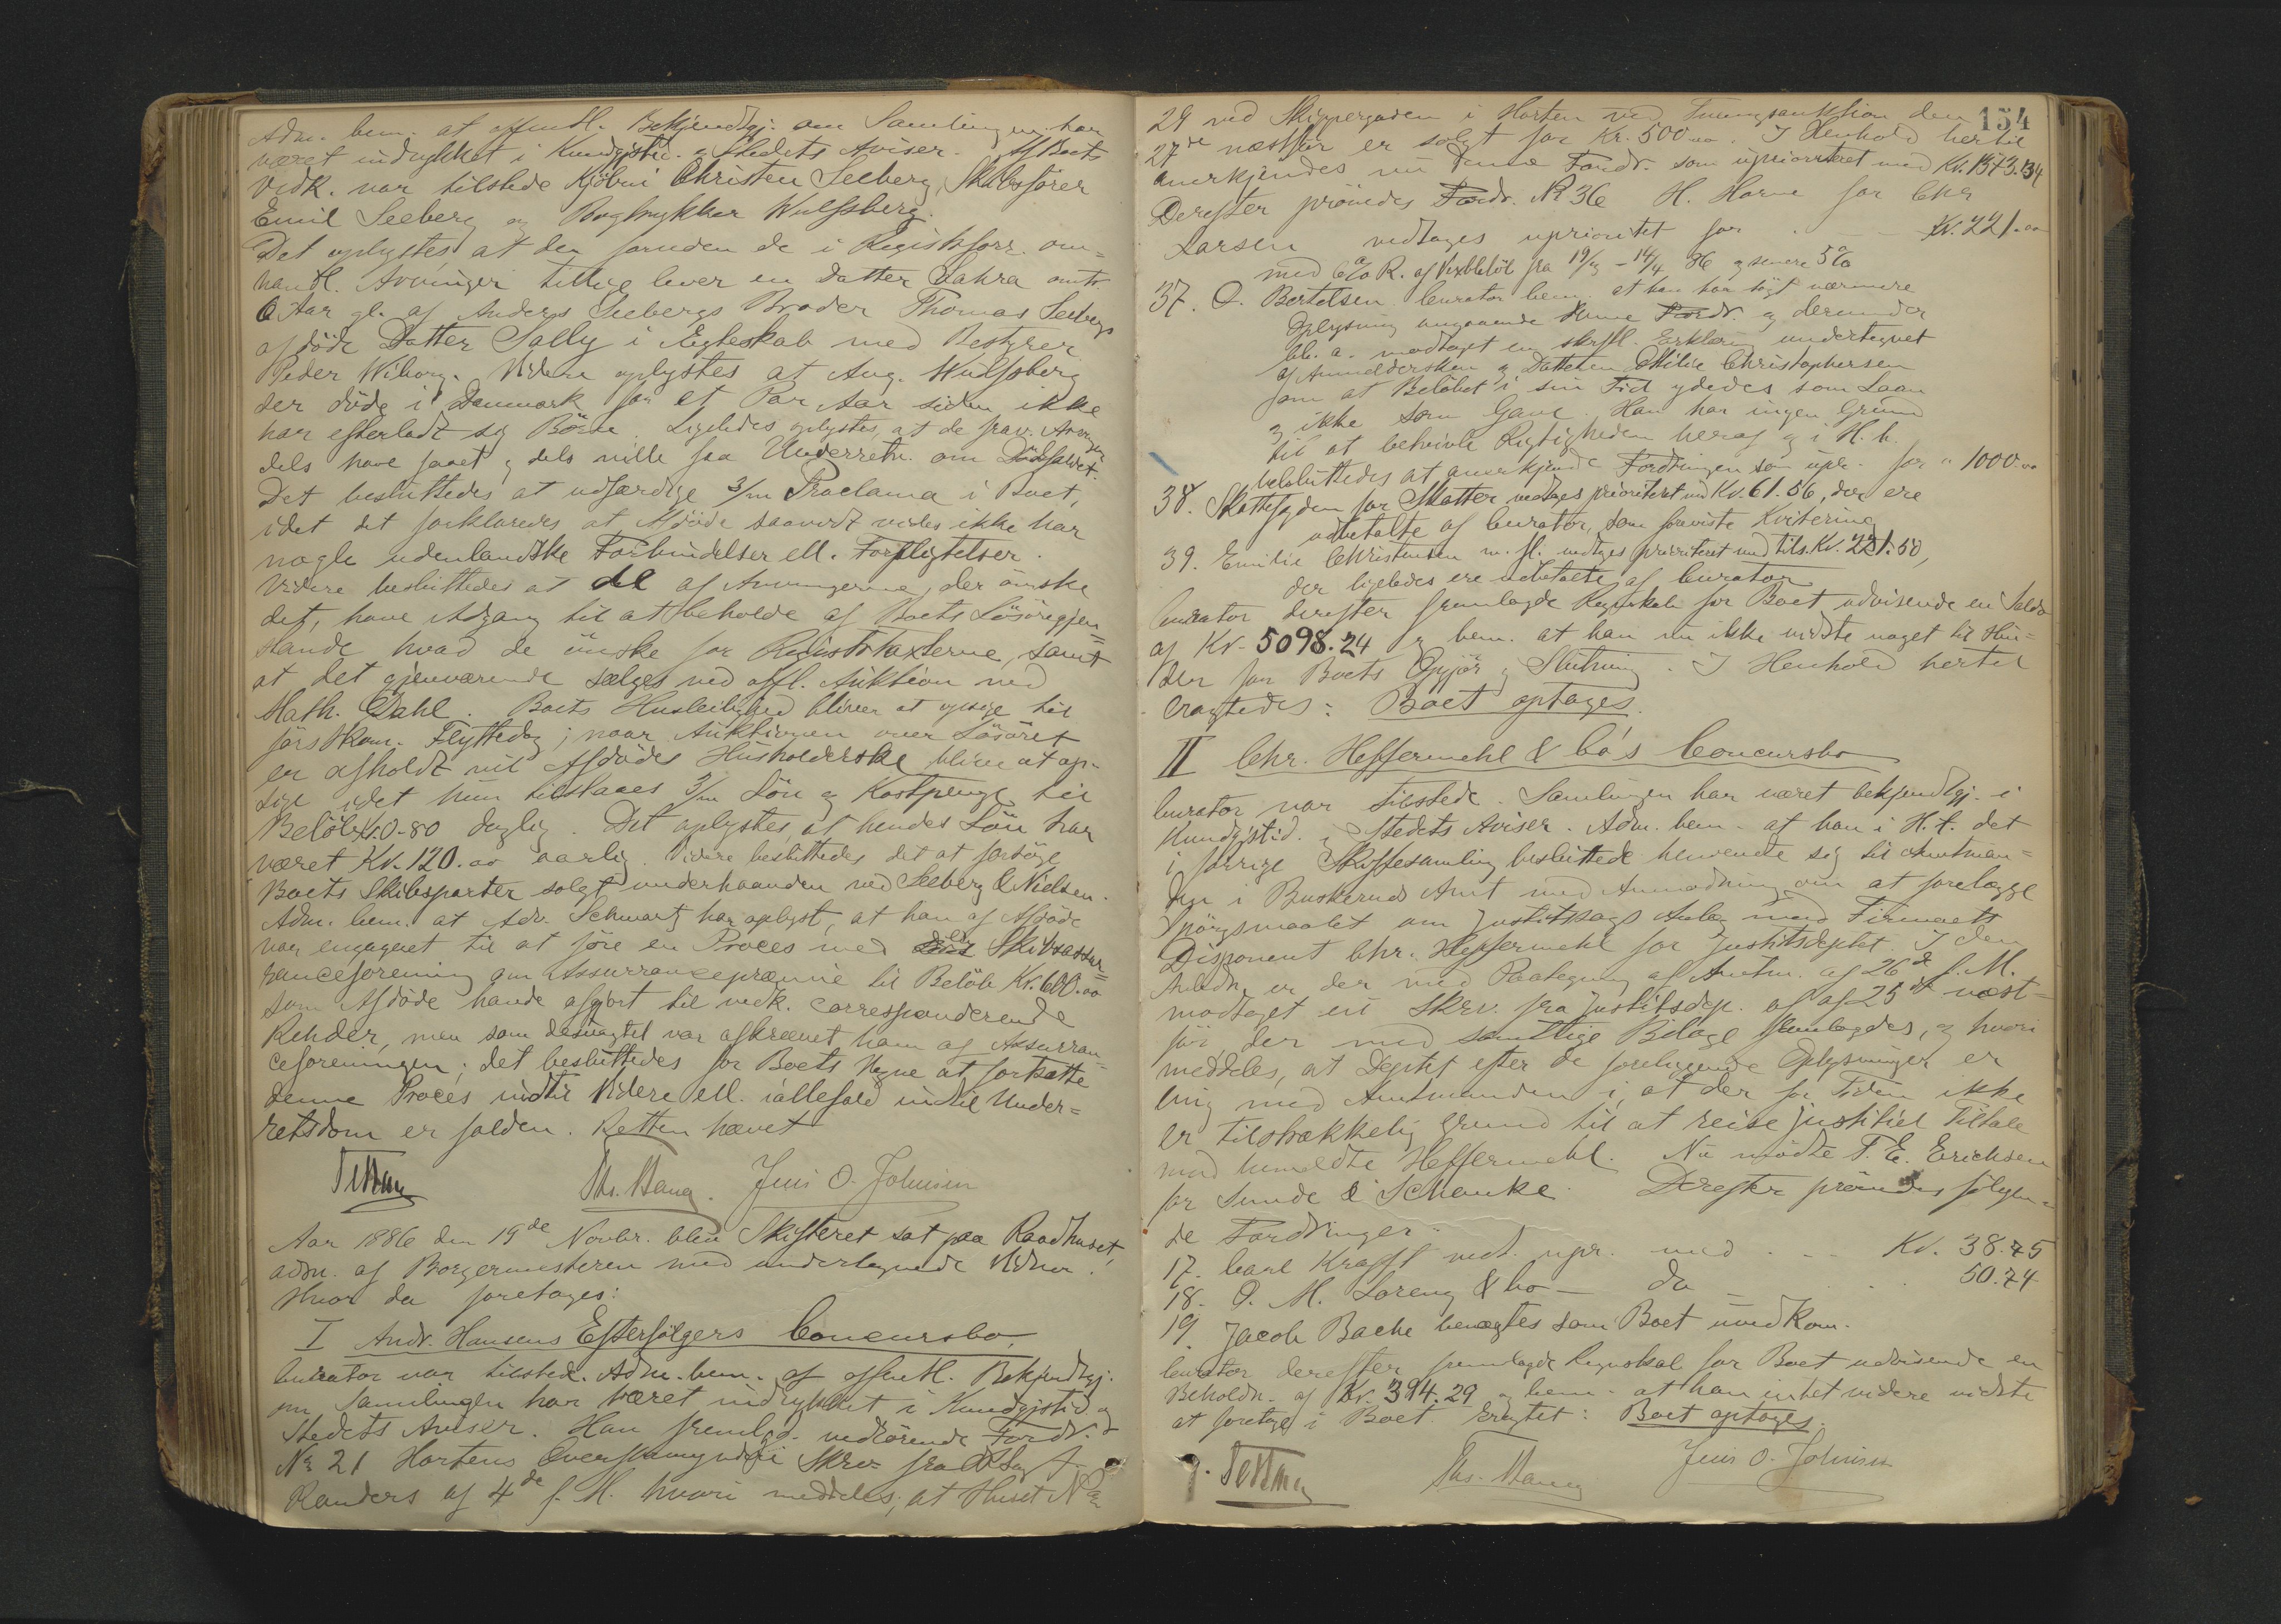 Adm. bem. at offentl. Bekjendtgj. om Samlingen har
været indrykket i Kundgjstid. & Stedets Aviser. Af Boets
Vedk. var tilstede Kjöbm. Christen Seeberg, Skibsförer
Emil Seeberg og Bogtrykker Wulfsberg.
Det oplystes at der foruden de i Registrforr. om=
handl. Arvinger tillige lever en Datter omtr.
6 Aar gl. af Anders Seebergs Broder Thomas Seebergs
afdöde Datter Sally i Egteskab med Bestyrer
Peder Wiborg. Videre oplystes at Aug. Wulfsberg
der döde i Danmark for et Par Aar siden ikke
har efterladt sig Börn. Ligeledes oplystes, at de frav. Arvinger
dels have faaet og dels ville faa Underretn. om Dödsfaldet.
Det besluttedes at udfærdige 3/m Proclama i Boet,
idet det forklaredes at Afdöde saavidt vides ikke har
nogle udenlandske Forbindelser ell. Forpligtelser.
Videre besluttedes at de af Arvingerne, der önske
det, have Adgang til at beholde af Boets Lösöregjen=
stande hvad de önske for Registrtaxterne, samt
at det gjenværende sælges ved offl. Auktion ved
Math. Dahl. Boets Husleilighed bliver at opsige til
förstkom. Flyttedag; naar Auktionen over Lösöret
er afholdt vil Afdödes Husholderske blive at op-
sige idet hun tilstaaes 3/m Lön og Kostpenge til
Belöb Kr. 0-80 daglig. Det oplystes, at hendes Lön har
været Kr. 120.00 aarlig. Videre besluttedes det at forsöge
Boets Skibsparter solgt underhaanden ved Seeberg & Nielsen.
Adm. bem. at Adv. Schwartz har oplyst, at han af Afdöde
var engageret til at före en Proces med Skibsassur=
ranceforening om Assurrancepræmie til Belöb Kr. 600.00
som Afdöde havde afgjort til vedk. corresponderende
Rehder, men som desuagtet var afkrævet ham af Assurran=
ceforeningen; det besluttedes for Boets Vegne at fortsætte
denne Proces indtil Videre ell. iallefald indtil Under=
retsdom er falden. Retten hævet
Ths. Hang. Jens O. Johnsen
Aar 1886 den 19de Novbr. blev Skifteret sat paa Raadhuset,
adm. af Borgermesteren med undertegnede Vidner.
Hvor da foretages:
I Andr. Hansens Efterfölgers Concursbo
Curator var tilsted. Adm. bem. at offentl. Bekjendtgj.
om Samlingen har været indrykket i Kundgjstid. og
Stedets Aviser. Han fremlgd. vedrörende Fordr.
No 21 Hortens Overformynderi Skrv. fra
Randers af 4de f. M. hvori meddeles, at Huset No
154
29 ved Skippergaden i Horten ved Tvangsauktion den
27de næstför er solgt for Kr. 500.00. I Henhold hertil
anerkjendes nu denne Fordr. som uprioriteret med Kr. 1373.34
Derefter prövedes Fordr. No 36 H. Horne for Chr
Larsen vedtoges uprioritet for - - Kr. 221.00
med 6% R. af Vexbelöb fra 19/3 - 14/4 86 og senere 5%
37. O. Bertelsen. Curator bem. at han har sögt nærmere
Oplysning angaaende denne Fordr. og derunder
bl. a. modtaget en skriftl. Erklæring undertegnet
af Anmeldersken og Datteren Christophersen
som at Belöbet i sin Tid ydedes som Laan
og ikke som Gave. Han har ingen Grund
til at betvivle Rigtigheden heraf og i H. h.
besluttedes at anerkjende Fordringen som upr. for " 1000.00
38. Skattefogden for Skatter vedtoges prioriteret med Kr. 61.56, der ere
udbetalte af Curator, som foreviste Kvitering
39. Emilie Christensen m. fl. vedtoges prioriteret med tils. Kr. 221.50,
der ligeledes ere udbetalte af Curator
Curator derefter fremlagde Regnskab for Boet udvisende en Saldo
af Kr. 5098.24 og bem. at han nu ikke vidste noget til Hin=
der for Boets Opgjör og Slutning. I Henhold hertil
eragtedes: Boet optages.
II Chr. Heffermehl & Co's Concursbo
Curator var tilstede. Samlingen har været bekjendtgj. i
Kundgjstid. og Stedets Aviser. Adm. bem. at han i H. t. det
i forrige Skiftesamling besluttede henvendte sig til Amtman=
den i Buskeruds Amt med Anmodning om at forelægge
Spörgsmaalet om Justitssags Anlæg mod Firmaets
Disponent Chr. Heffermehl for Justitsdeptet. I den
Anledn. er der med Paategning af Amtm. af 26de f. M.
modtaget et Skrv. fra Justitsdep. af 25de næst=
för der med samtlige Bilage fremlagdes, og hvori
meddeles, at Deptet efter de foreliggende Oplysninger er
enig med Amtmanden i, at der for Tiden ikke
er tilstrækkelig Grund til at reise justitiel Tiltale
mod bemeldte Heffermehl. Nu mödte T. E. Erichsen
for Sunde & Schanke. Derefter prövedes fölgen=
de Fordringer:
17. Carl Krafft vedt. upr. med - - Kr. 38.75
18. O. M. Loreng & Co - do - 50.74
19. Jacob Bache benegtes som Boet uvedkom.
Curator derefter fremlagde Regnskab for Boet udvisende en
Beholdn. af Kr. 394.29 og bem. at han intet videre vidste
at foretage i Boet. Eragtet: Boet optages.
Ths. Hang Jens O. Johnsen